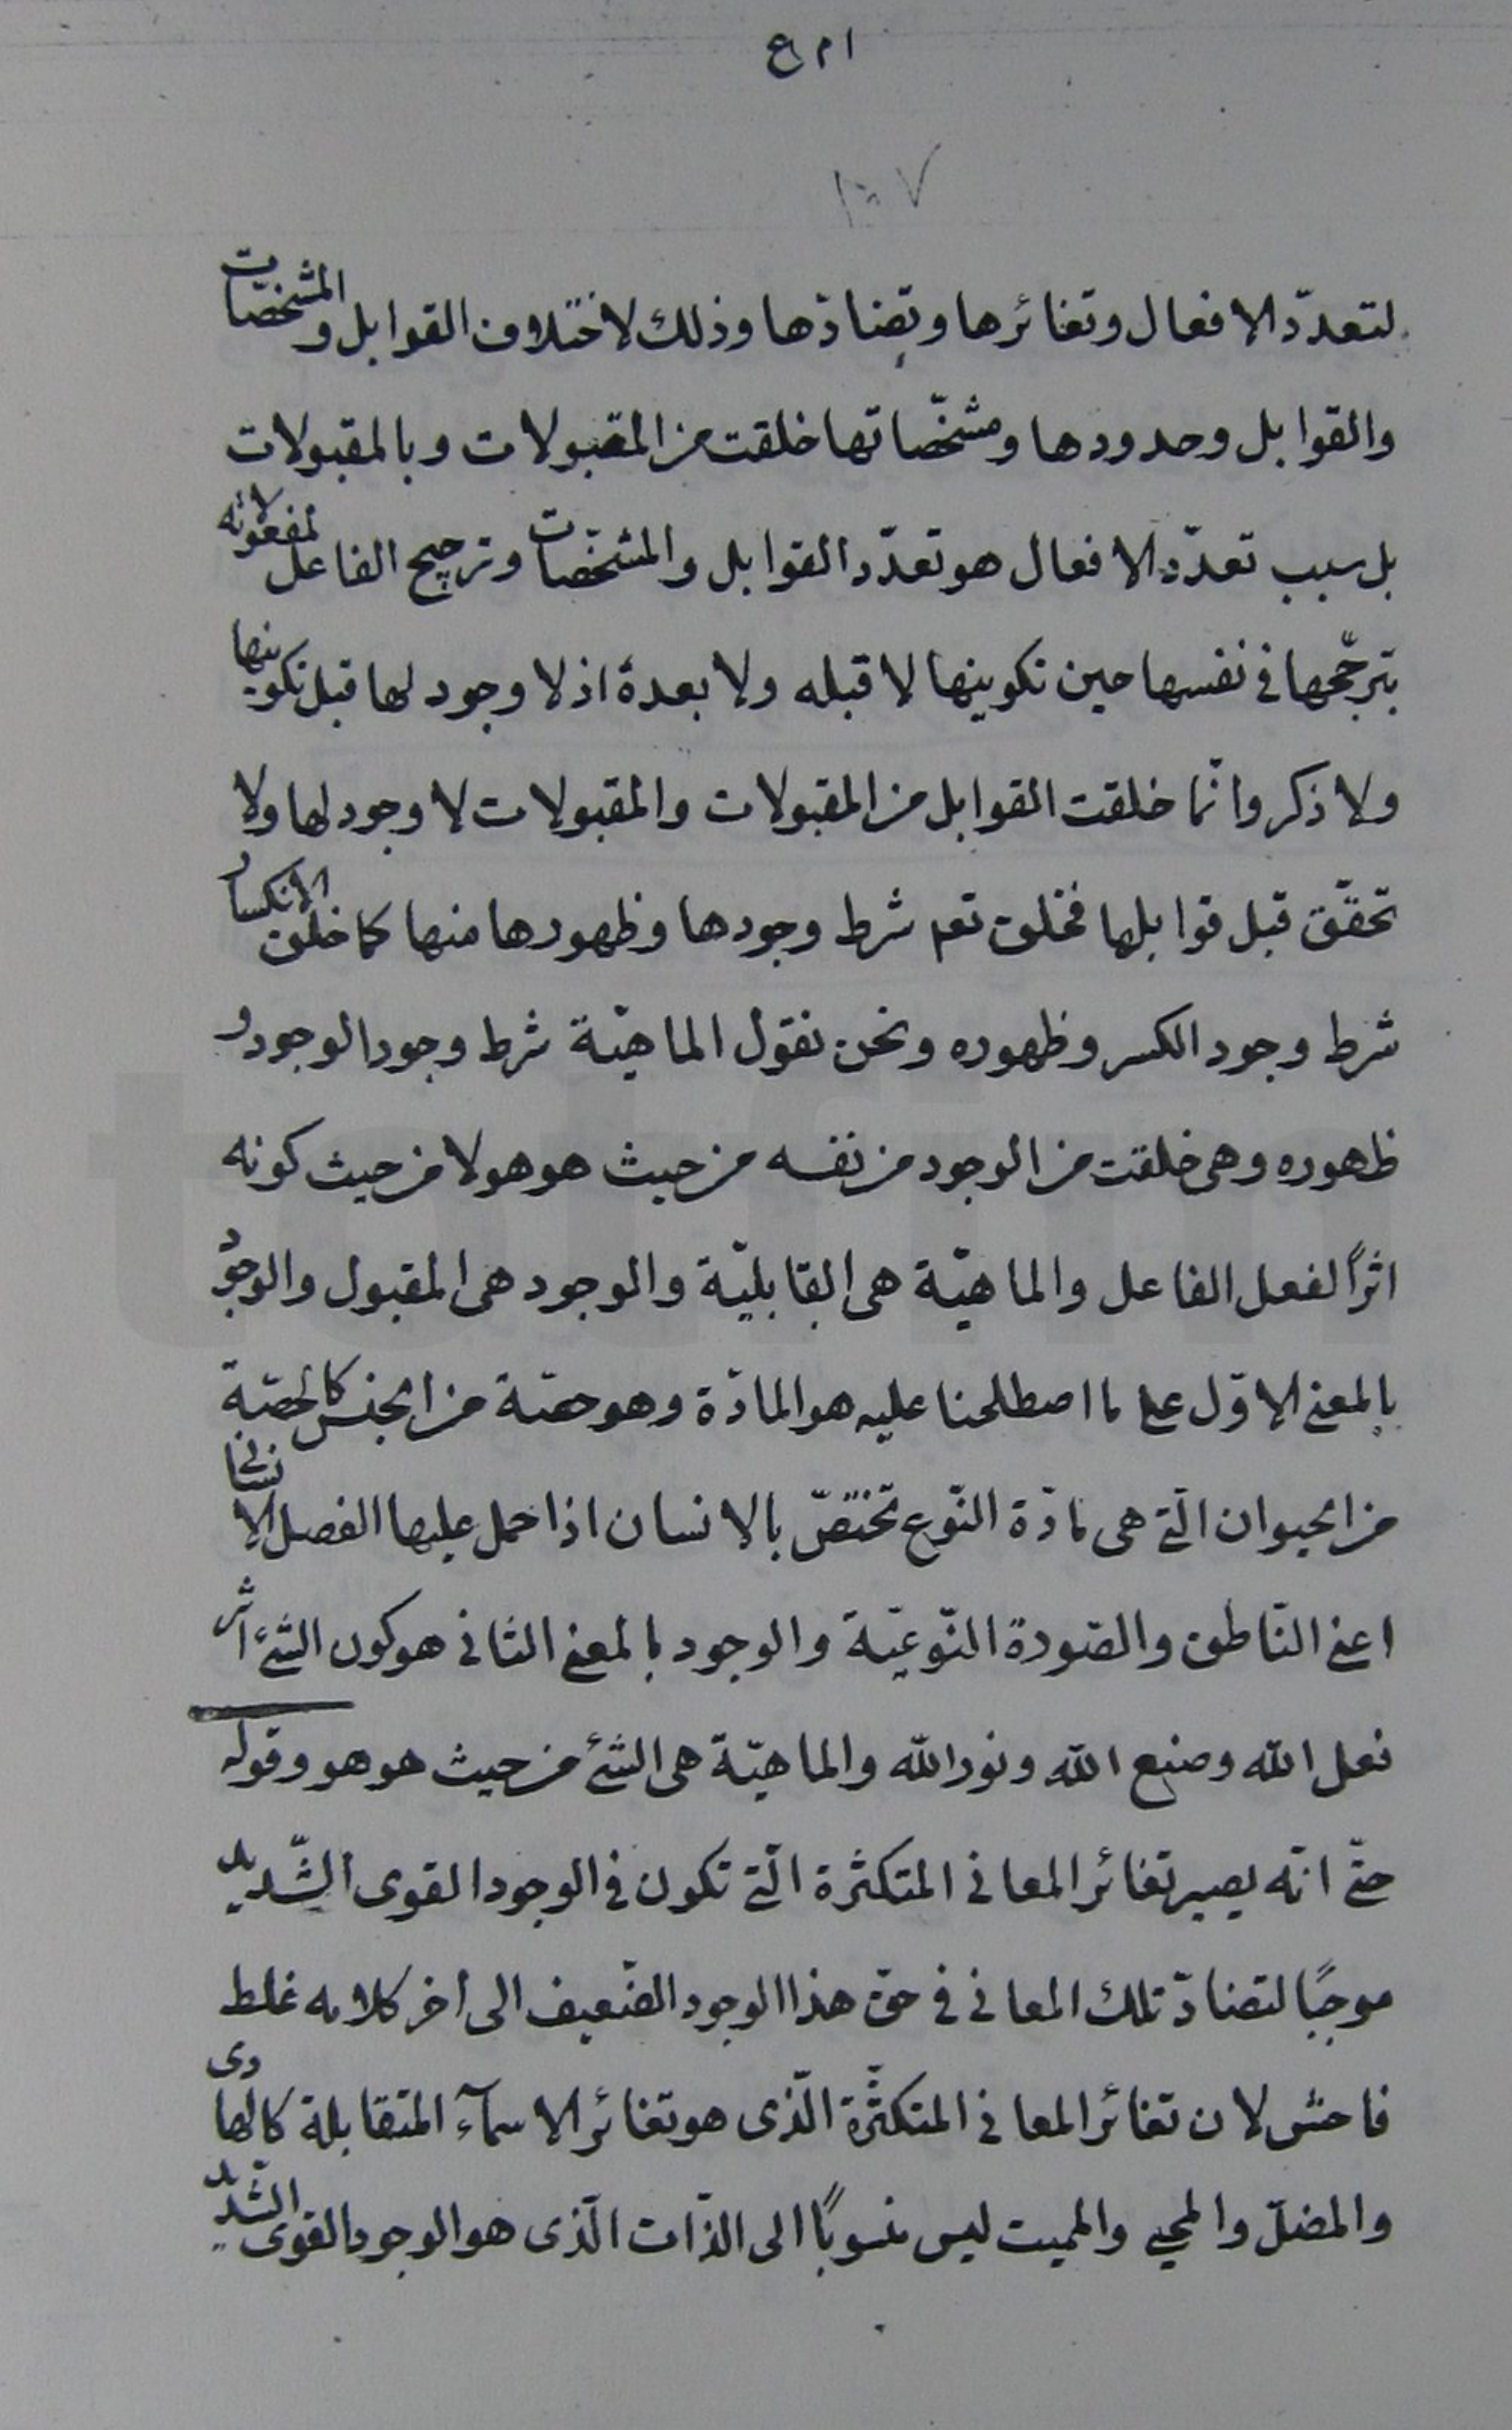 لتعدّد الافعال وتغائرها وتضادّها وذلك لاختلاف القوابل والمشخصات
والقوابل وحدودها ومشخّصاتها خلقت من المقبولات وبالمقبولات
بل سبب تعدّد الافعال هو تعدّد القوابل والمشخّصات وترجيح الفاعل لمفعولاته
بترجّحها فى نفسها حين تكوينها لا قبله ولا بعدهٔ اذ لا وجود لها قبل تكوينها
ولا ذكر وانّما خلقت القوابل من المقبولات والمقبولات لا وجود لها ولا
تحقّق قبل قوابلها فخلق نعم شرط وجودها وظهورها منها كما خلق الانكسار
شرط وجود الكسر وظهوره ونحن نقول الماهيّة شرط وجود الوجود و
ظهوره وهى خلقت من الوجود من نفسه من حيث هو هو لا من حيث كونه
اثرًا لفعل الفاعل والماهيّة هى القابليّة والوجود هى المقبول والوجود
بالمعنى الاوّل على ما اصطلحنا عليه هو المادّة وهو حصّة من الجنس كالحصّة
من الحيوان الّتى هى مادّة النّوع تختصّ بالانسان اذا حمل عليها الفصل الانسانى
اعنى النّاطق والصّورة النّوعيّة والوجود بالمعنى الثانى هو كون الشئ اثر
فعل الله وصنع الله ونور الله والماهيّة هى الشئ من حيث هو هو وقوله
حتّى انّه يصير تغائر المعانى المتكثرة الّتى تكون فى الوجود القوى الشّديد
موجبًا لتضادّ تلك المعانى فى حقّ هذا الوجود الضّعيف الى أخر كلامه غلط
فاحش لان تغائر المعانى المتكثّرة الّذى هو تغائر الاسمآء المتقابلة كالهادى
والمضلّ والمحيى والمميت ليس منسوبًا الى الذّات الّذى هو الوجود القوى الشّديد
totfim